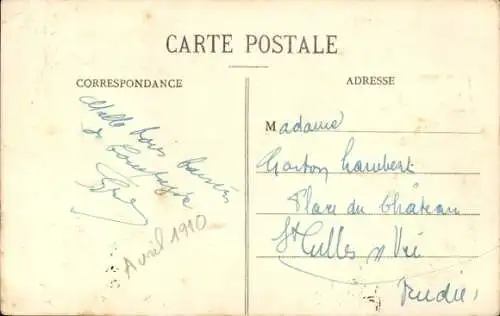 CARTE POSTALE
CORRESPONDANCE
ADRESSE
Mille bons baisers
de
Avril 1910
Madame
Gaston Lambert
Place du Château
St Gilles s/ Vie
Vendée